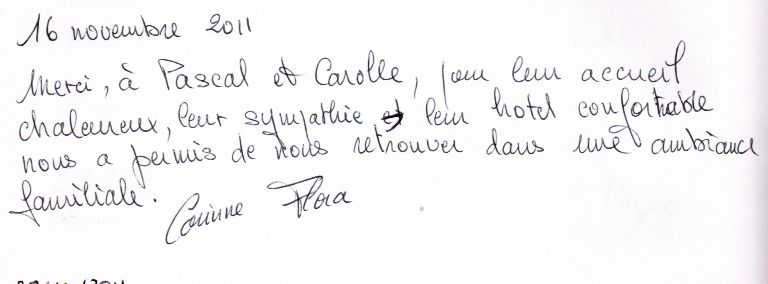 16 novembre 2011
Merci, à Pascal et Carolle, pour leur accueil
chaleureux, leur sympathie et leur hotel confortable
nous a permis de nous retrouver dans une ambiance
familiale.
Corinne Flora